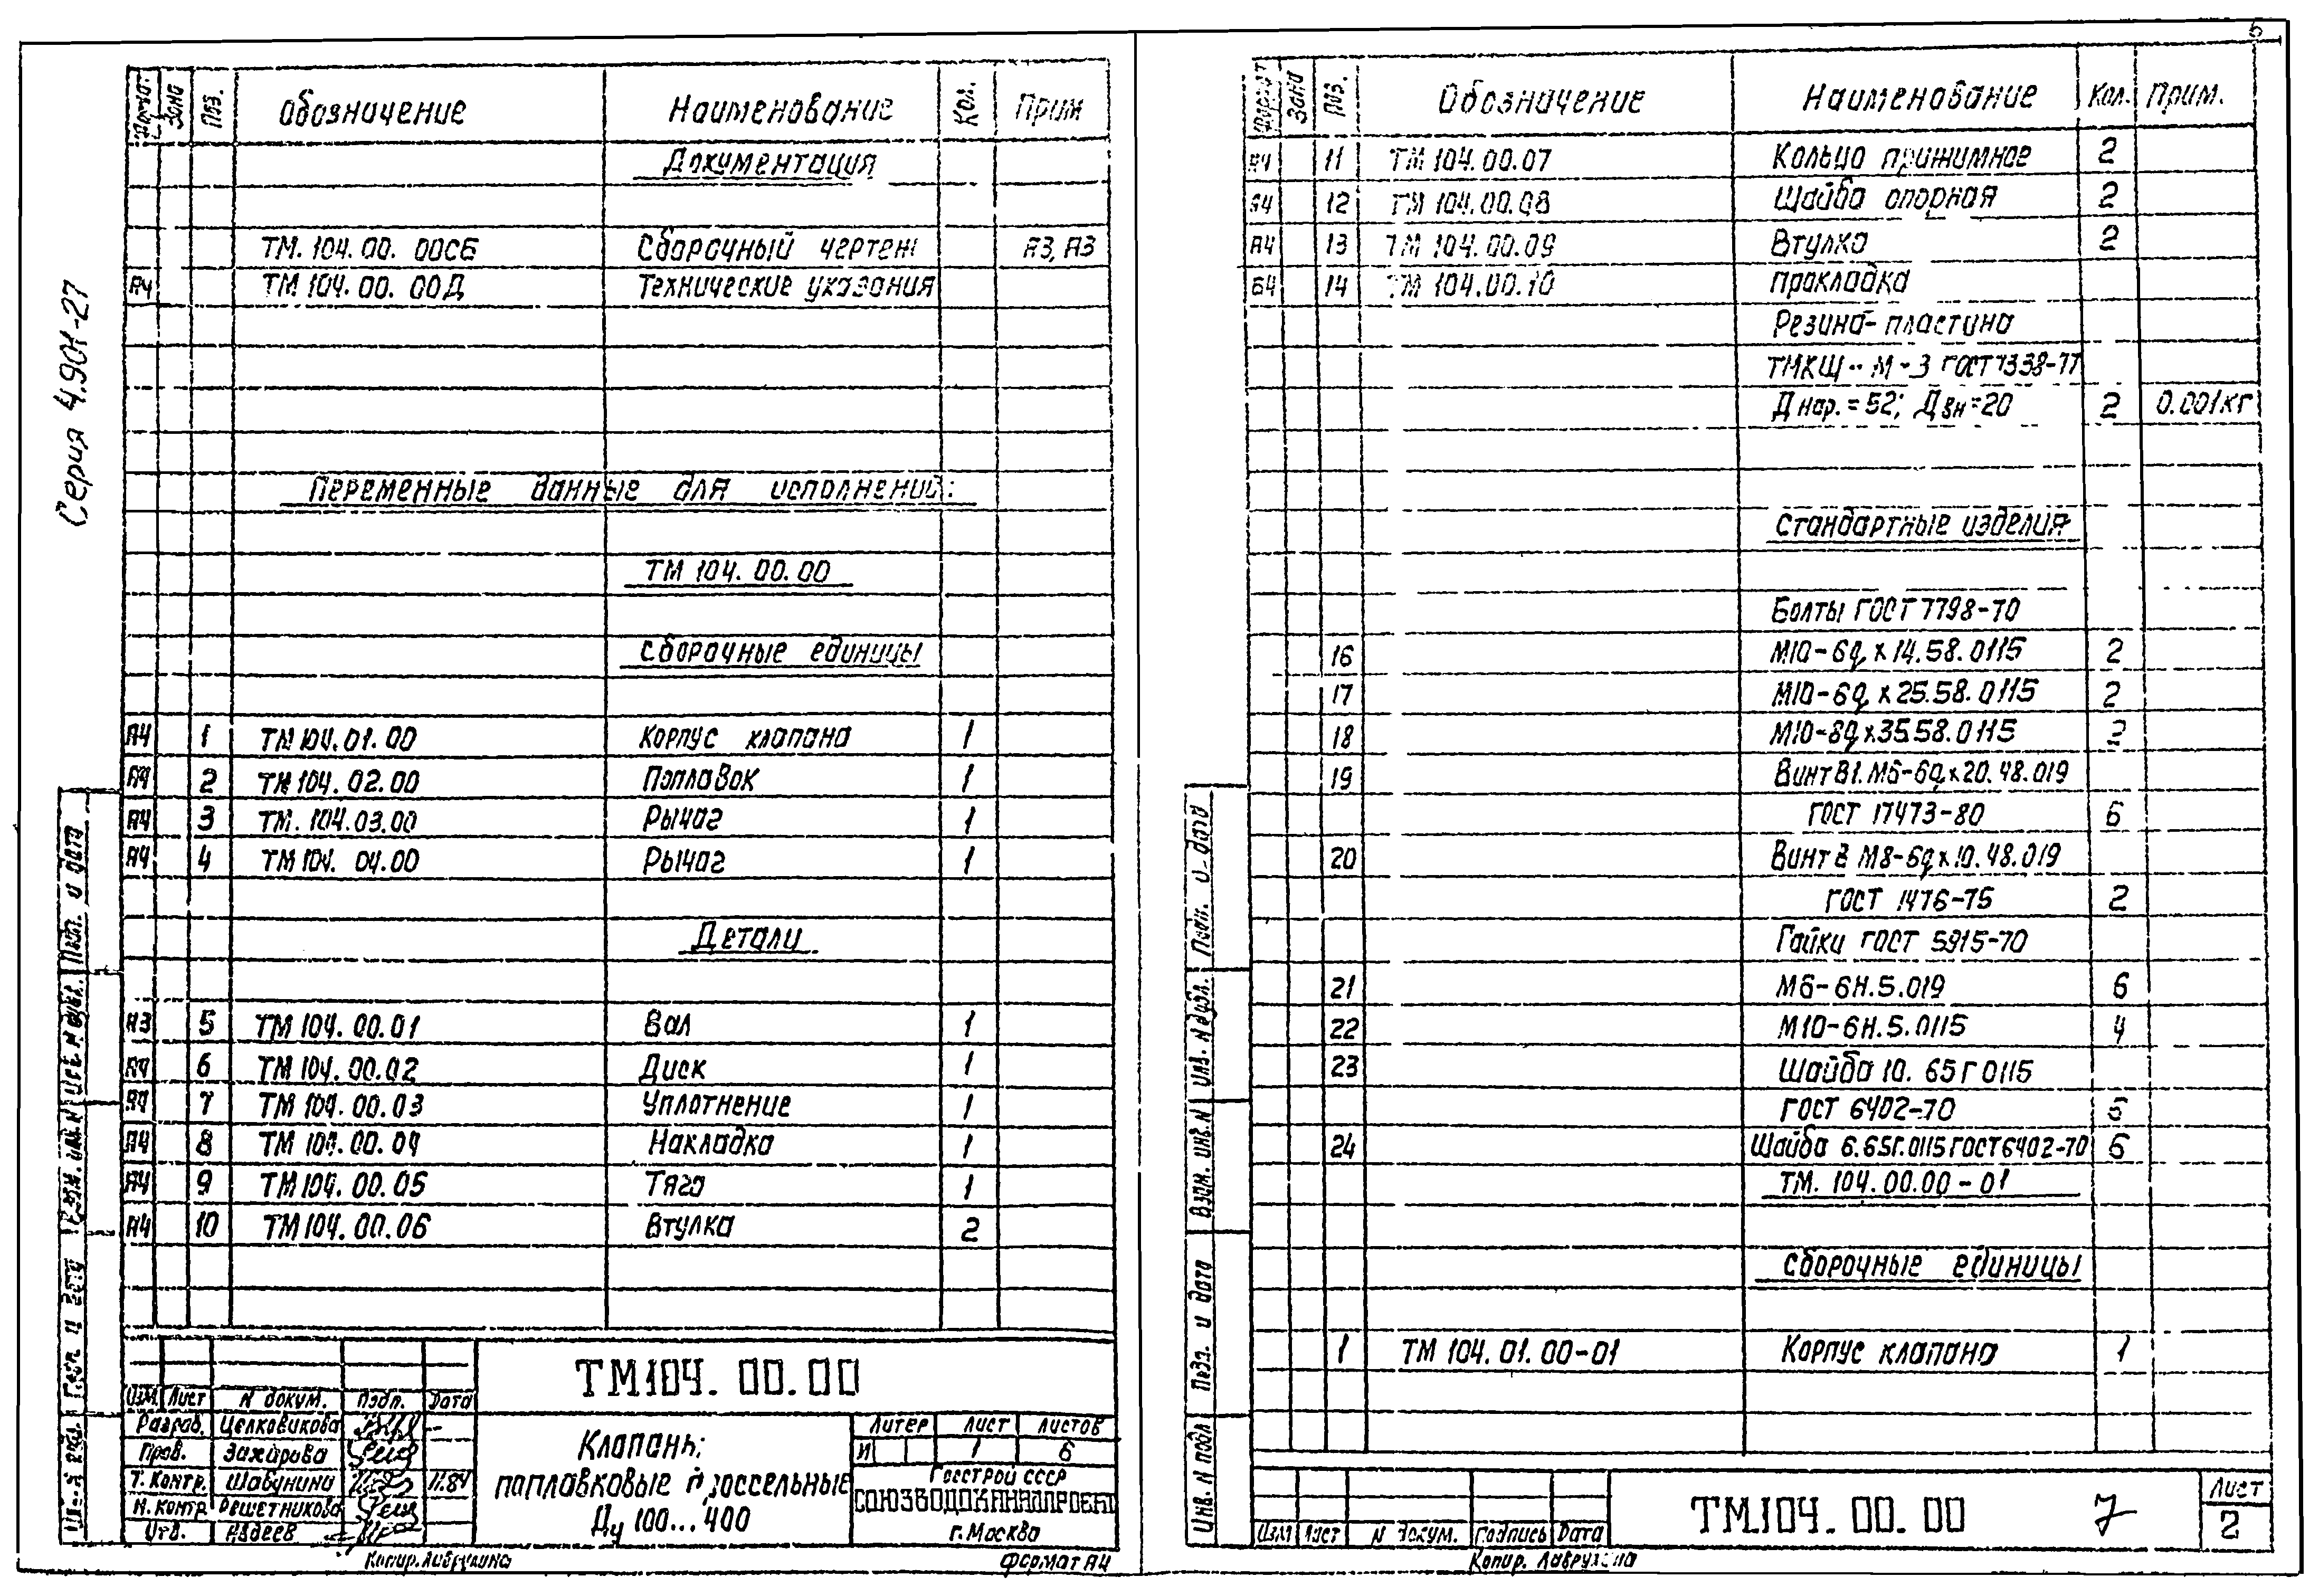 5
Серия 4.901-27
Формат Зона Поз. Обозначение Наименование Кол. Прим
Документация
ТМ.104.00.00СБ Сборочный чертеж А3,А3
А4 ТМ 104.00.00Д Технические указания
Переменные данные для исполнений:
ТМ 104.00.00
Сборочные единицы
А4 1 ТМ 104.01.00 Корпус клапана 1
А4 2 ТМ 104.02.00 Поплавок 1
А4 3 ТМ.104.03.00 Рычаг 1
А4 4 ТМ 104.04.00 Рычаг 1
Детали
А3 5 ТМ 104.00.01 Вал 1
А4 6 ТМ 104.00.02 Диск 1
А4 7 ТМ 104.00.03 Уплотнение 1
А4 8 ТМ 104.00.04 Накладка 1
А4 9 ТМ 104.00.05 Тяга 1
А4 10 ТМ 104.00.06 Втулка 2
Подп. и дата
Взам. инв. N
Подп. и дата
ТМ104.00.00
Изм Лист N докум. Подп. Дата
Разраб. Целковикова
Пров. Захарова
Т. контр. Шабунина 11.84
Н. контр Решетникова
Утв. Авдеев
Клапаны
поплавковые дроссельные
Ду 100...400
Литер Лист Листов
И 1 6
Госстрой СССР
СОЮЗВОДОКАНАЛПРОЕКТ
г. Москва
Копир. Лаврухина Формат А4
Формат Зона Поз. Обозначение Наименование Кол. Прим.
А4 11 ТМ 104.00.07 Кольцо прижимное 2
А4 12 ТМ 104.00.08 Шайба опорная 2
А4 13 ТМ 104.00.09 Втулка 2
БЧ 14 ТМ 104.00.10 Прокладка
Резина-пластина
ТМКЩ-М-3 ГОСТ 7338-77
Д нар.=52; Двн=20 2 0.001кг
Стандартные изделия
Болты ГОСТ 7798-70
16 М10-6g х 14.58.0115 2
17 М10-6g х 25.58.0115 2
18 М10-8g х 35.58.0115 2
19 Винт В1.М6-6g х 20.48.019
ГОСТ 17473-80 6
20 Винт В М8-6g х 10.48.019
ГОСТ 1476-75 2
Гайки ГОСТ 5915-70
21 М6-6Н.5.019 6
22 М10-6Н.5.0115 4
23 Шайба 10. 65Г 0115
ГОСТ 6402-70 6
24 Шайба 6.65Г.0115 ГОСТ 6402-70 6
ТМ. 104.00.00-01
Сборочные единицы
1 ТМ 104.01.00-01 Корпус клапана 1
Подп. и дата
Инв. N дубл.
Взам. инв. N
Подп. и дата
Инв. N подл
Изм Лист N докум. Подпись Дата
ТМ.104.00.00
7
Лист
2
Копир. Лаврухина